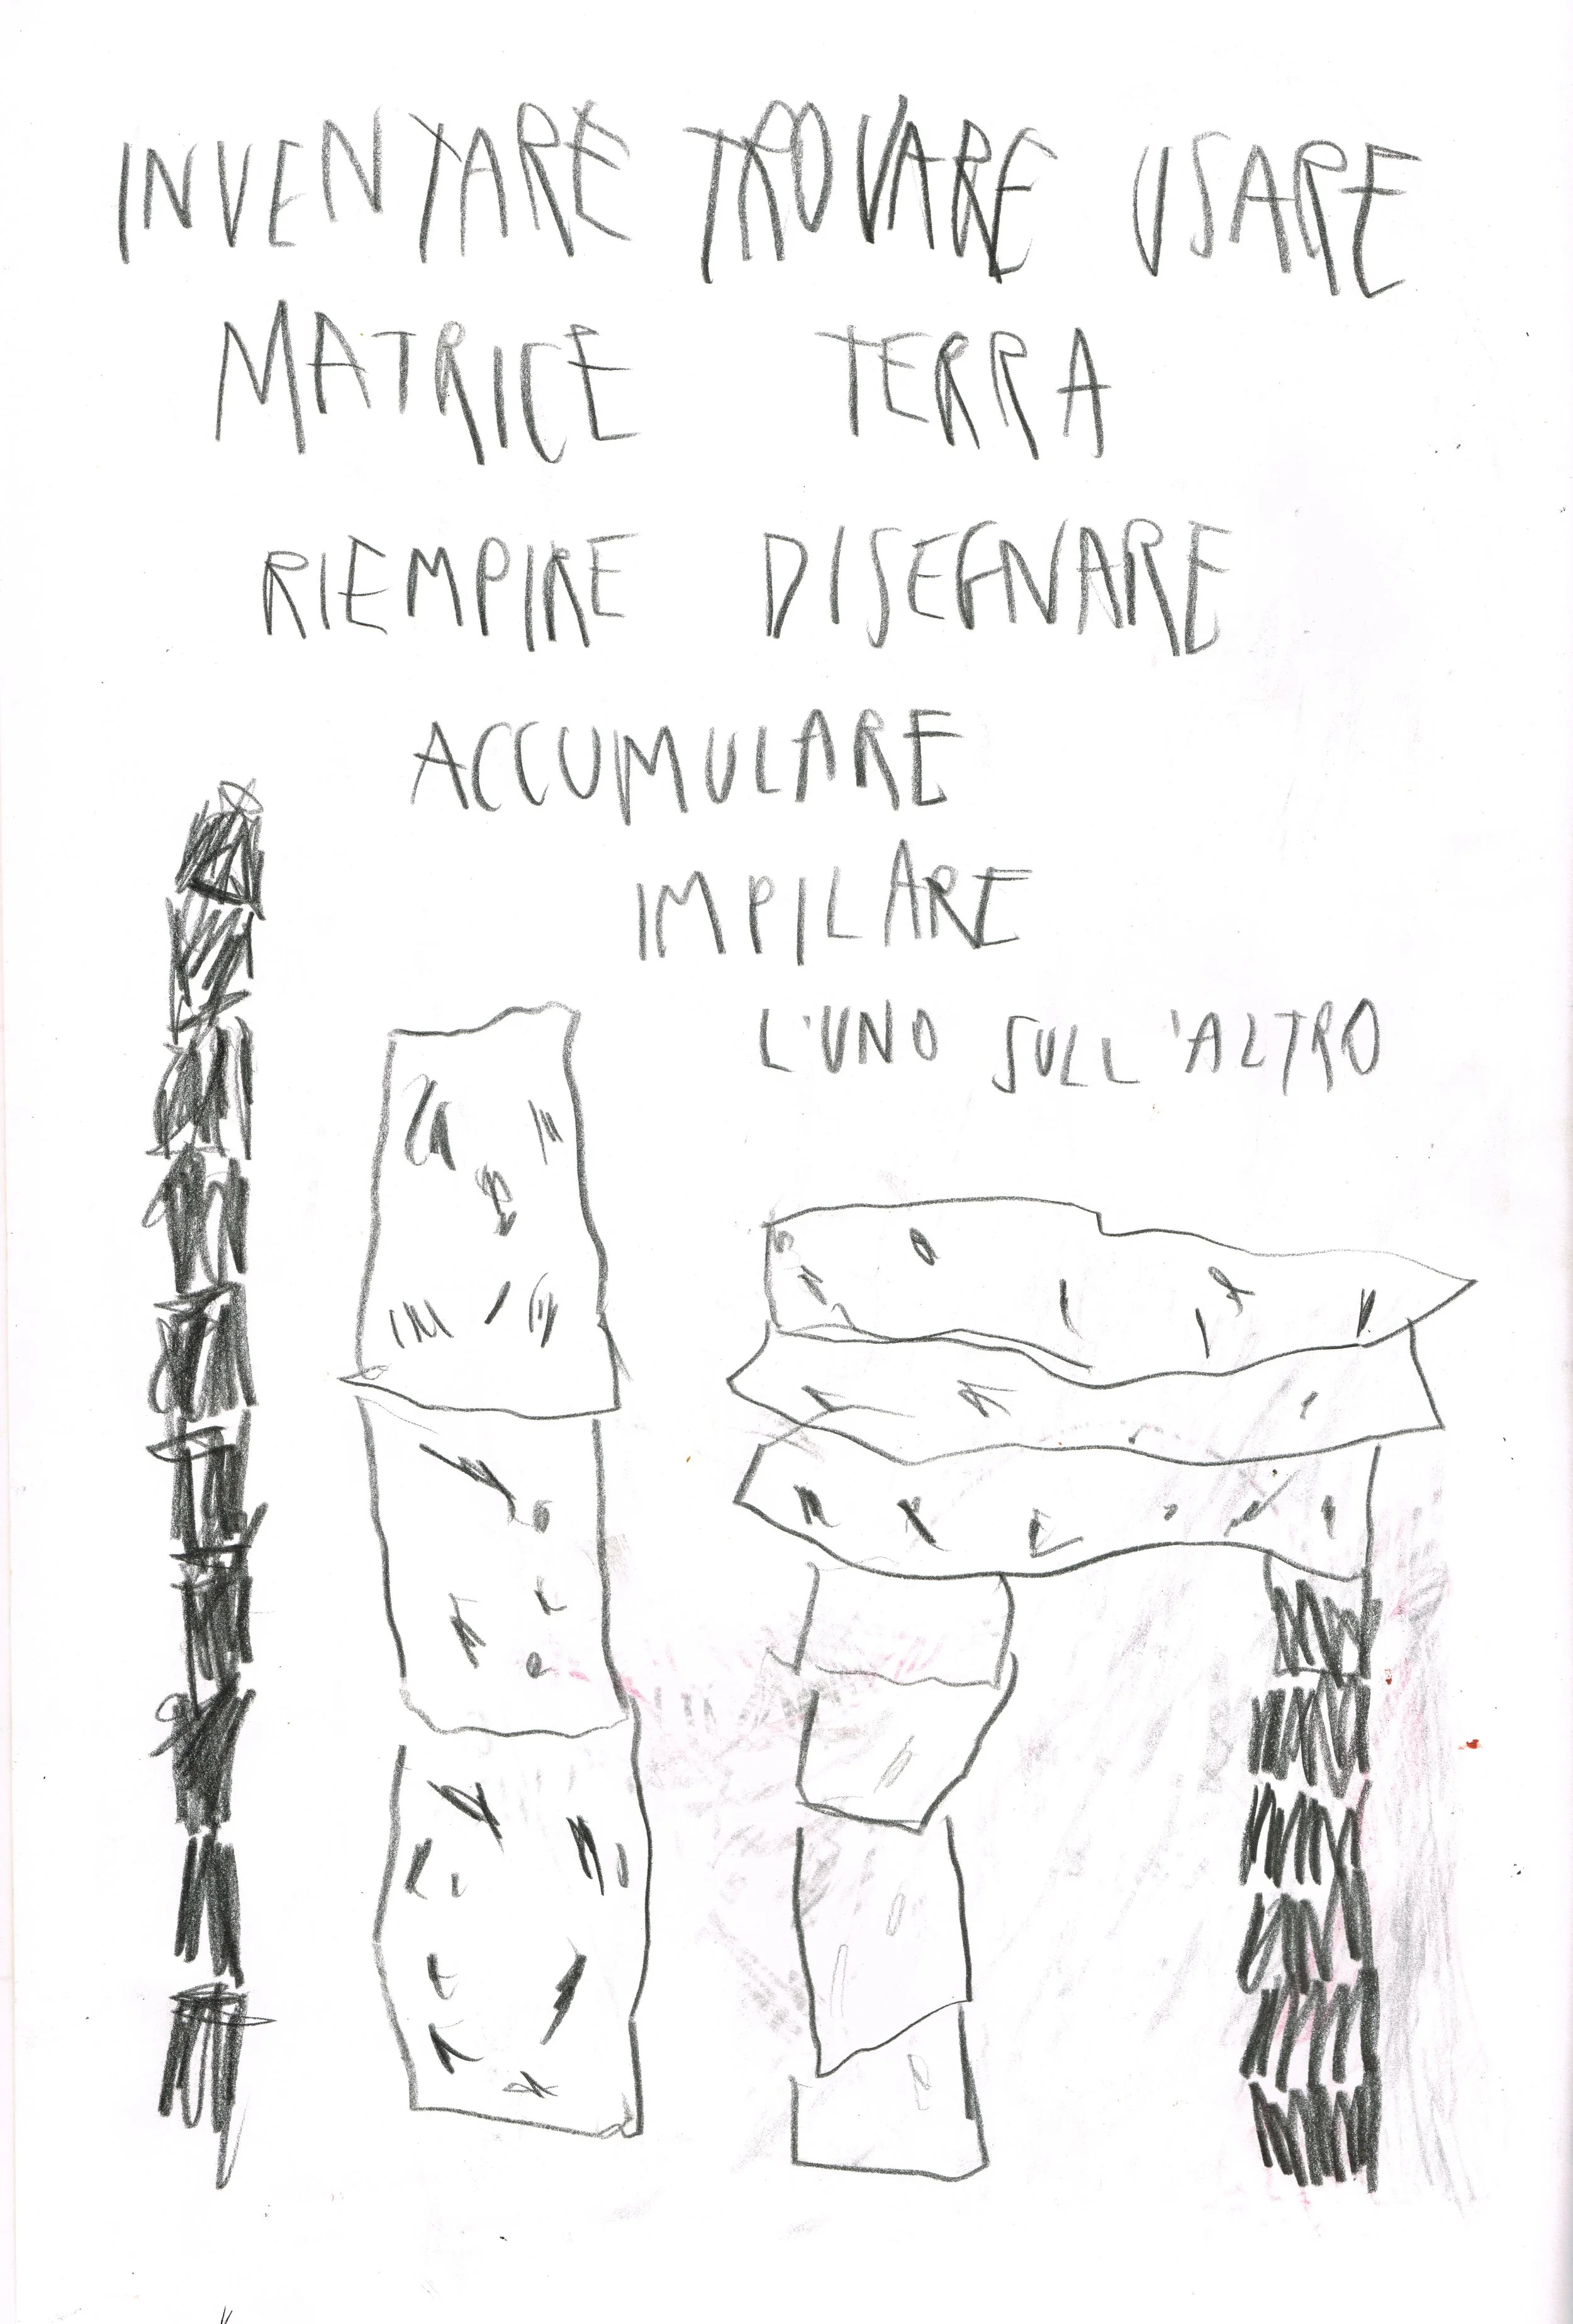 INVENTARE TROVARE USARE
MATRICE TERRA
RIEMPIRE DISEGNARE
ACCUMULARE
IMPILARE
L'UNO SULL'ALTRO